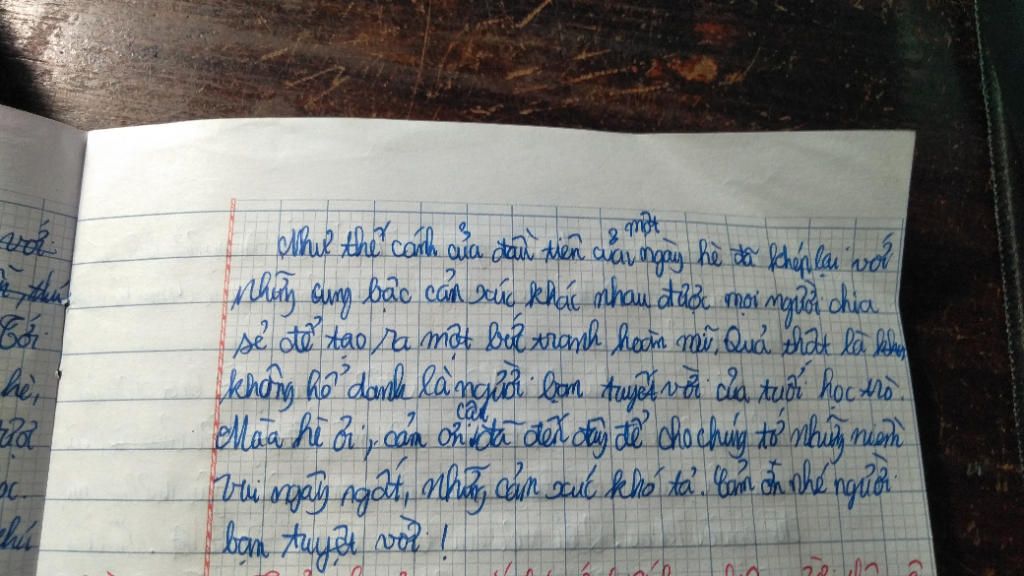 với
một
Như thế cánh cửa đầu tiên của ngày hè đã khép lại với
những cung bậc cảm xúc khác nhau được mọi người chia
sẻ để tạo ra một bức tranh hoàn mĩ. Quả thật là
không hổ danh là người bạn tuyệt vời của tuổi học trò.
cậu
Mùa hè ơi, cảm ơn đã đến đây để cho chúng tớ những niềm
vui ngây ngất, những cảm xúc khó tả. Cảm ơn nhé người
bạn tuyệt vời!
Tới
hè,